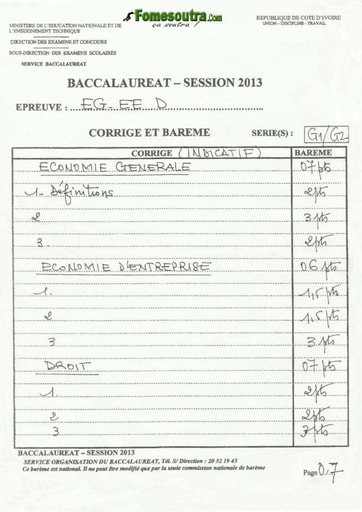 Fomesoutra.com
ça soutra !
MINISTERE DE L'EDUCATION NATIONALE ET DE
L'ENSEIGNEMENT TECHNIQUE
DIRECTION DES EXAMENS ET CONCOURS
SOUS-DIRECTION DES EXAMENS SCOLAIRES
SERVICE BACCALAUREAT
REPUBLIQUE DE COTE D'IVOIRE
UNION – DISCIPLINE - TRAVAIL
BACCALAUREAT – SESSION 2013
EPREUVE : EG-EE D
CORRIGE ET BAREME SERIE(S) : G1/G2
CORRIGE (INDICATIF) BAREME
ECONOMIE GENERALE 07 pts
1- Définitions 2pts
2 3 pts
3. 2pts
ECONOMIE D'ENTREPRISE 06 pts
1. 1,5 pts
2 1,5 pts
3 3 pts
DROIT 07 pts
1. 2pts
2 2pts
3 3 pts
BACCALAUREAT – SESSION 2013
SERVICE ORGANISATION DU BACCALAUREAT, Tél. S/ Direction : 20 32 19 45
Ce barème est national. Il ne peut être modifié que par la seule commission nationale de barème
Page 0/7